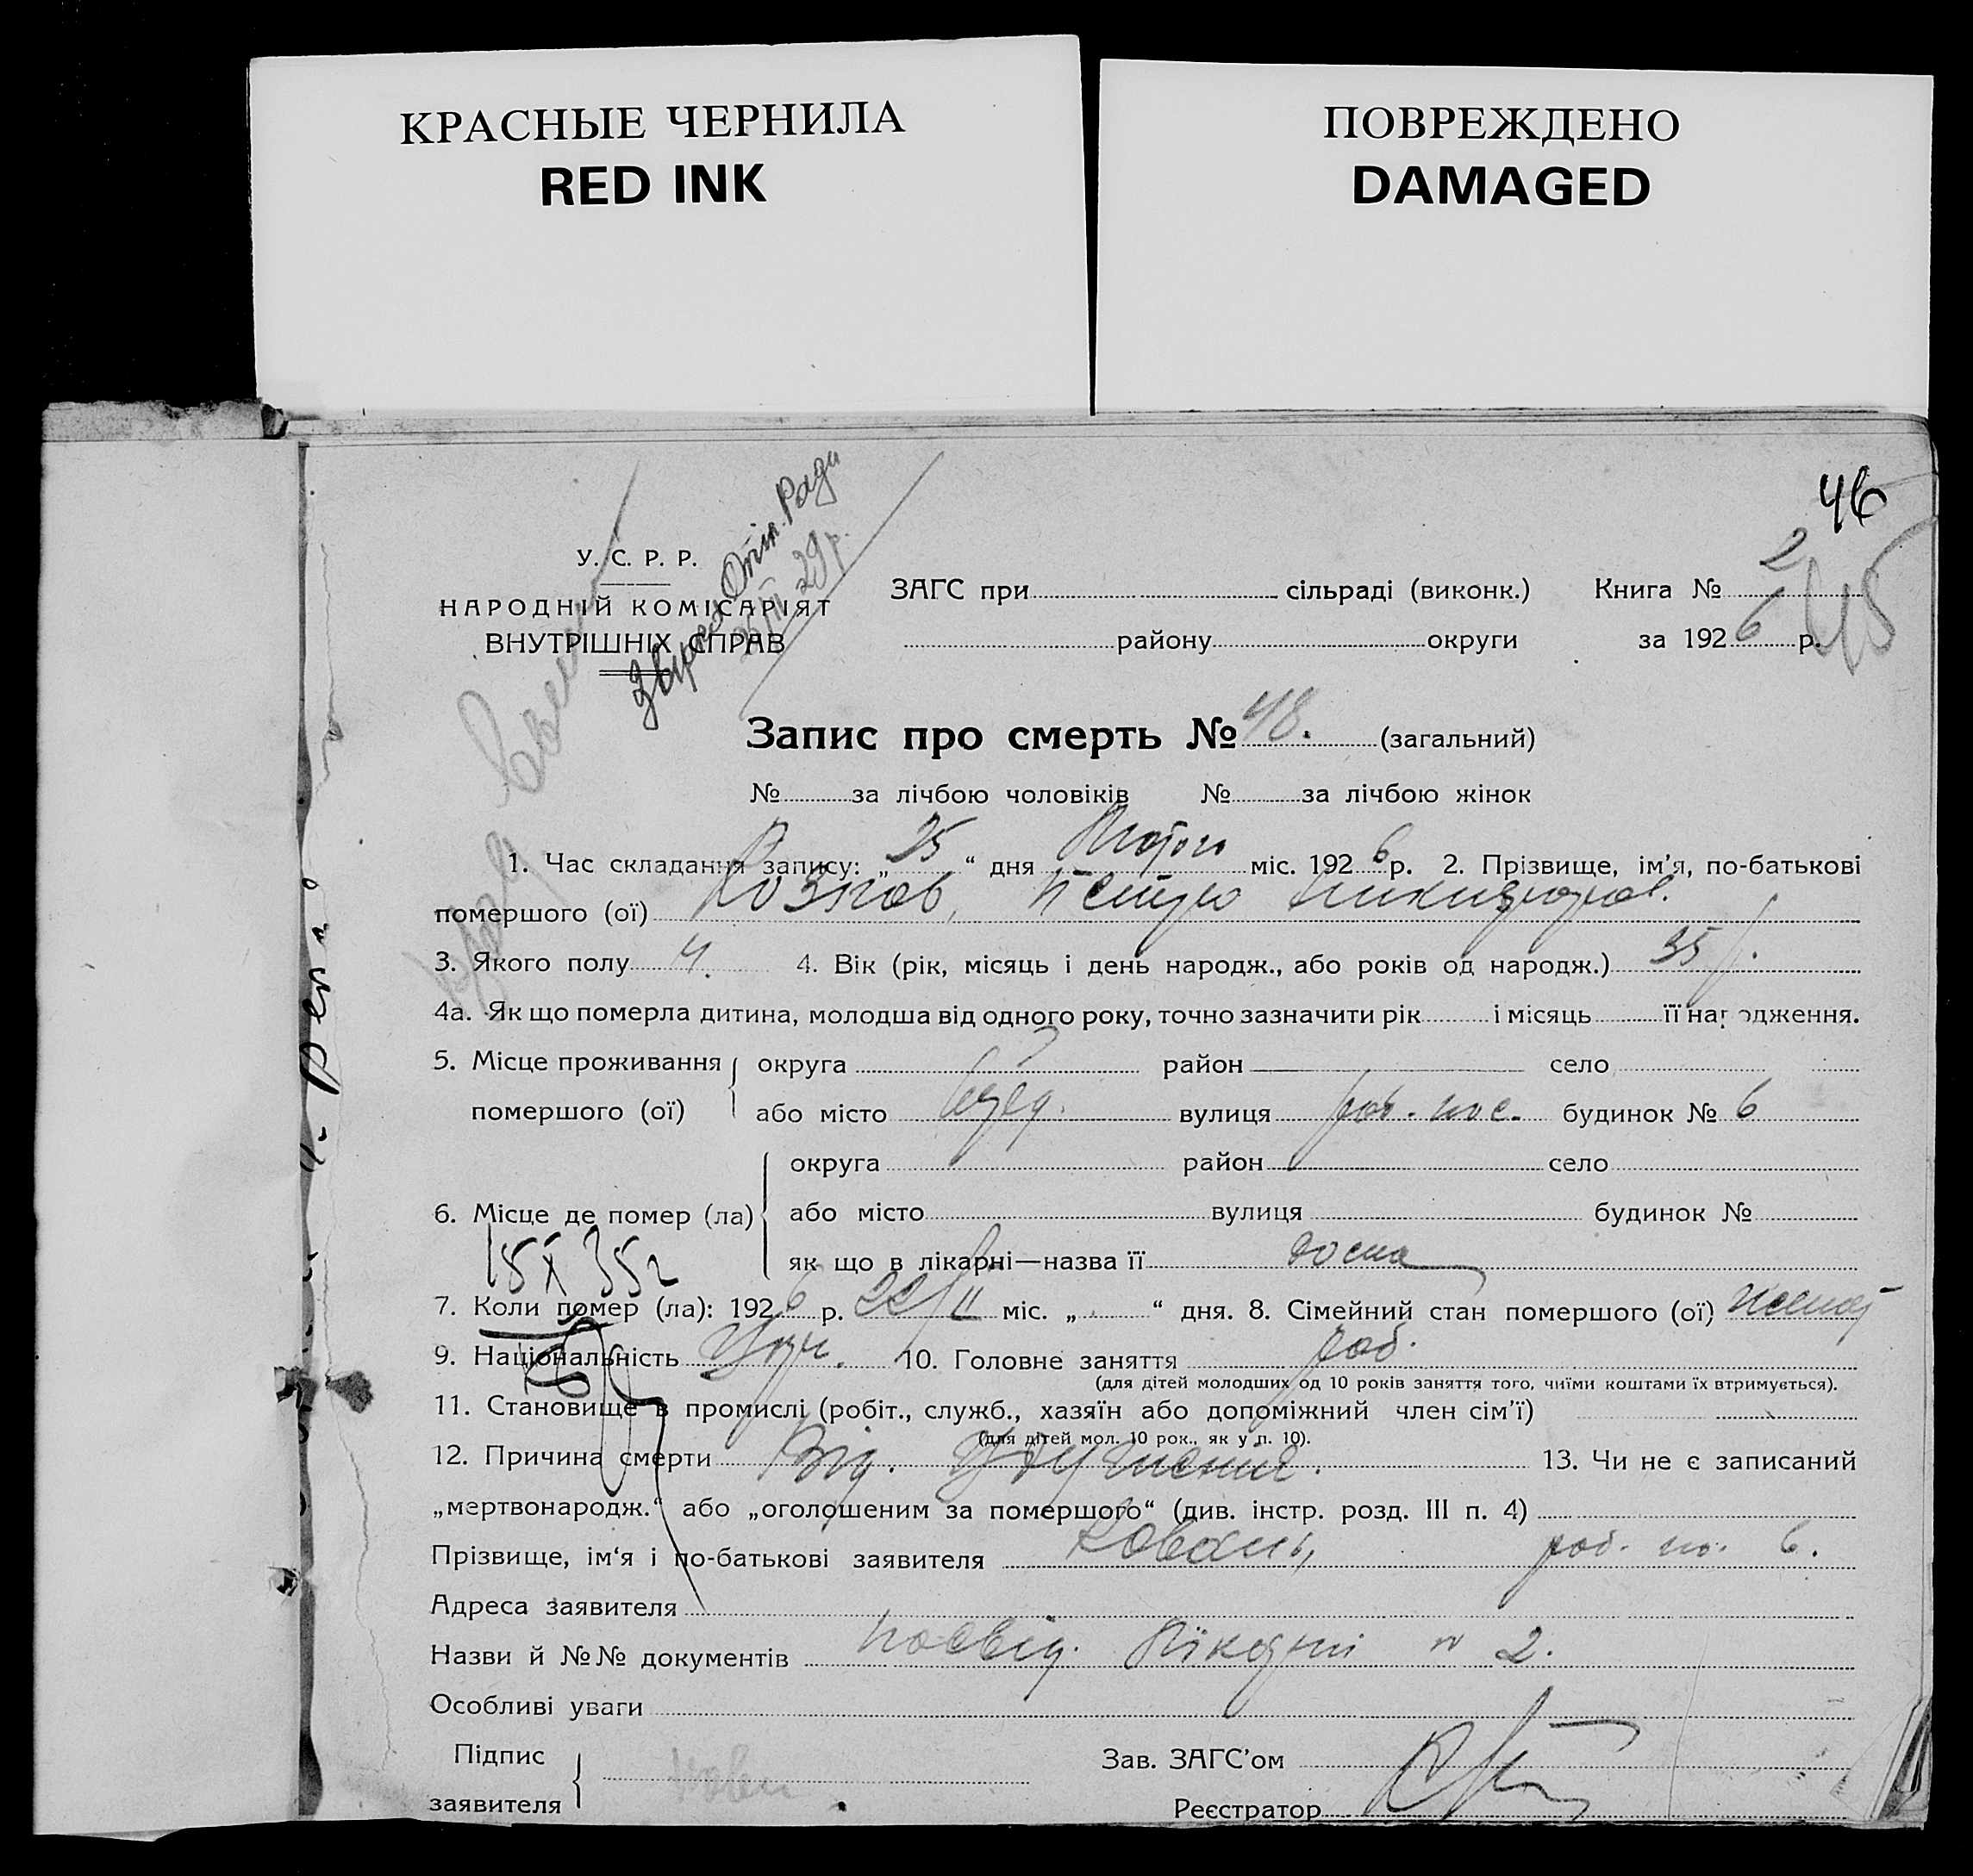 КРАСНЫЕ ЧЕРНИЛА
RED INK
ПОВРЕЖДЕНО
DAMAGED
46
45
У. С. Р. Р.
НАРОДНІЙ КОМІСАРІЯТ
ВНУТРІШНІХ СПРАВ
29 р.
ЗАГС при сільраді (виконк.) Книга № 2
району округи за 1926 р.
Запис про смерть № 48. (загальний)
№ за лічбою чоловіків № за лічбою жінок
1. Час складання запису: „25“ дня Лютого міс. 1926 р. 2. Прізвище, ім’я, по-батькові
помершого (ої) Козлов, Петро
3. Якого полу Ч. 4. Вік (рік, місяць і день народж., або років од народж.) 35 р.
4а. Як що померла дитина, молодша від одного року, точно зазначити рік і місяць її народження.
5. Місце проживання округа район село
помершого (ої) або місто вулиця роб. пос. будинок № 6
округа район село
6. Місце де помер (ла) або місто вулиця будинок №
як що в лікарні—назва її дома
15 X 35 г
7. Коли помер (ла): 1926 р. 22/II міс. „ “ дня. 8. Сімейний стан помершого (ої)
9. Національність Укр. 10. Головне заняття роб.
(для дітей молодших од 10 років заняття того, чиїми коштами їх втримується).
11. Становище в промислі (робіт., служб., хазяїн або допоміжний член сім’ї)
(для дітей мол. 10 рок., як у п. 10).
12. Причина смерти Від. 13. Чи не є записаний
„мертвонародж.“ або „оголошеним за помершого“ (див. інстр. розд. III п. 4)
Прізвище, ім‘я і по-батькові заявителя Коваль, роб. по. 6.
Адреса заявителя
Назви й №№ документів посвід. Лікарні № 2.
Особливі уваги
Підпис
заявителя
Зав. ЗАГС’ом
Реєстратор